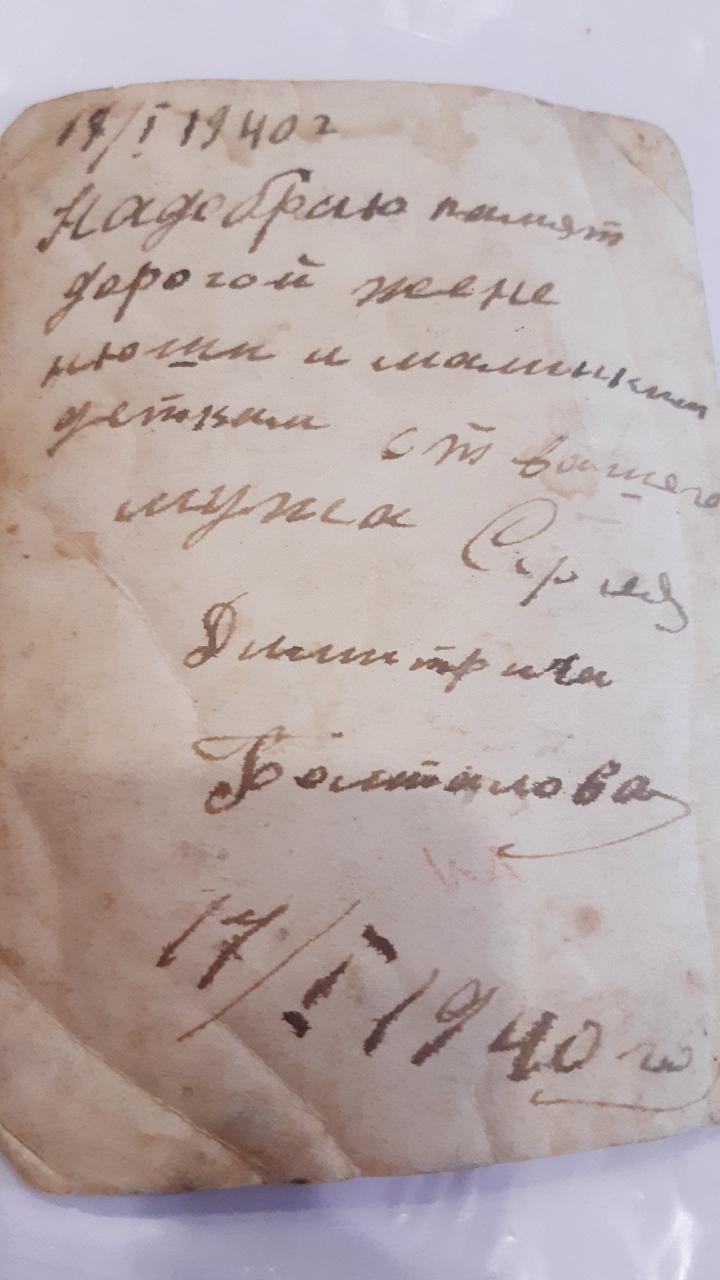 17/I 1940 г
Надоброю памят
дорогой жене
нюши и малиньким
деткам от вашего
мужа Сергея
Дмитрича
Болталова
17/I 1940 го